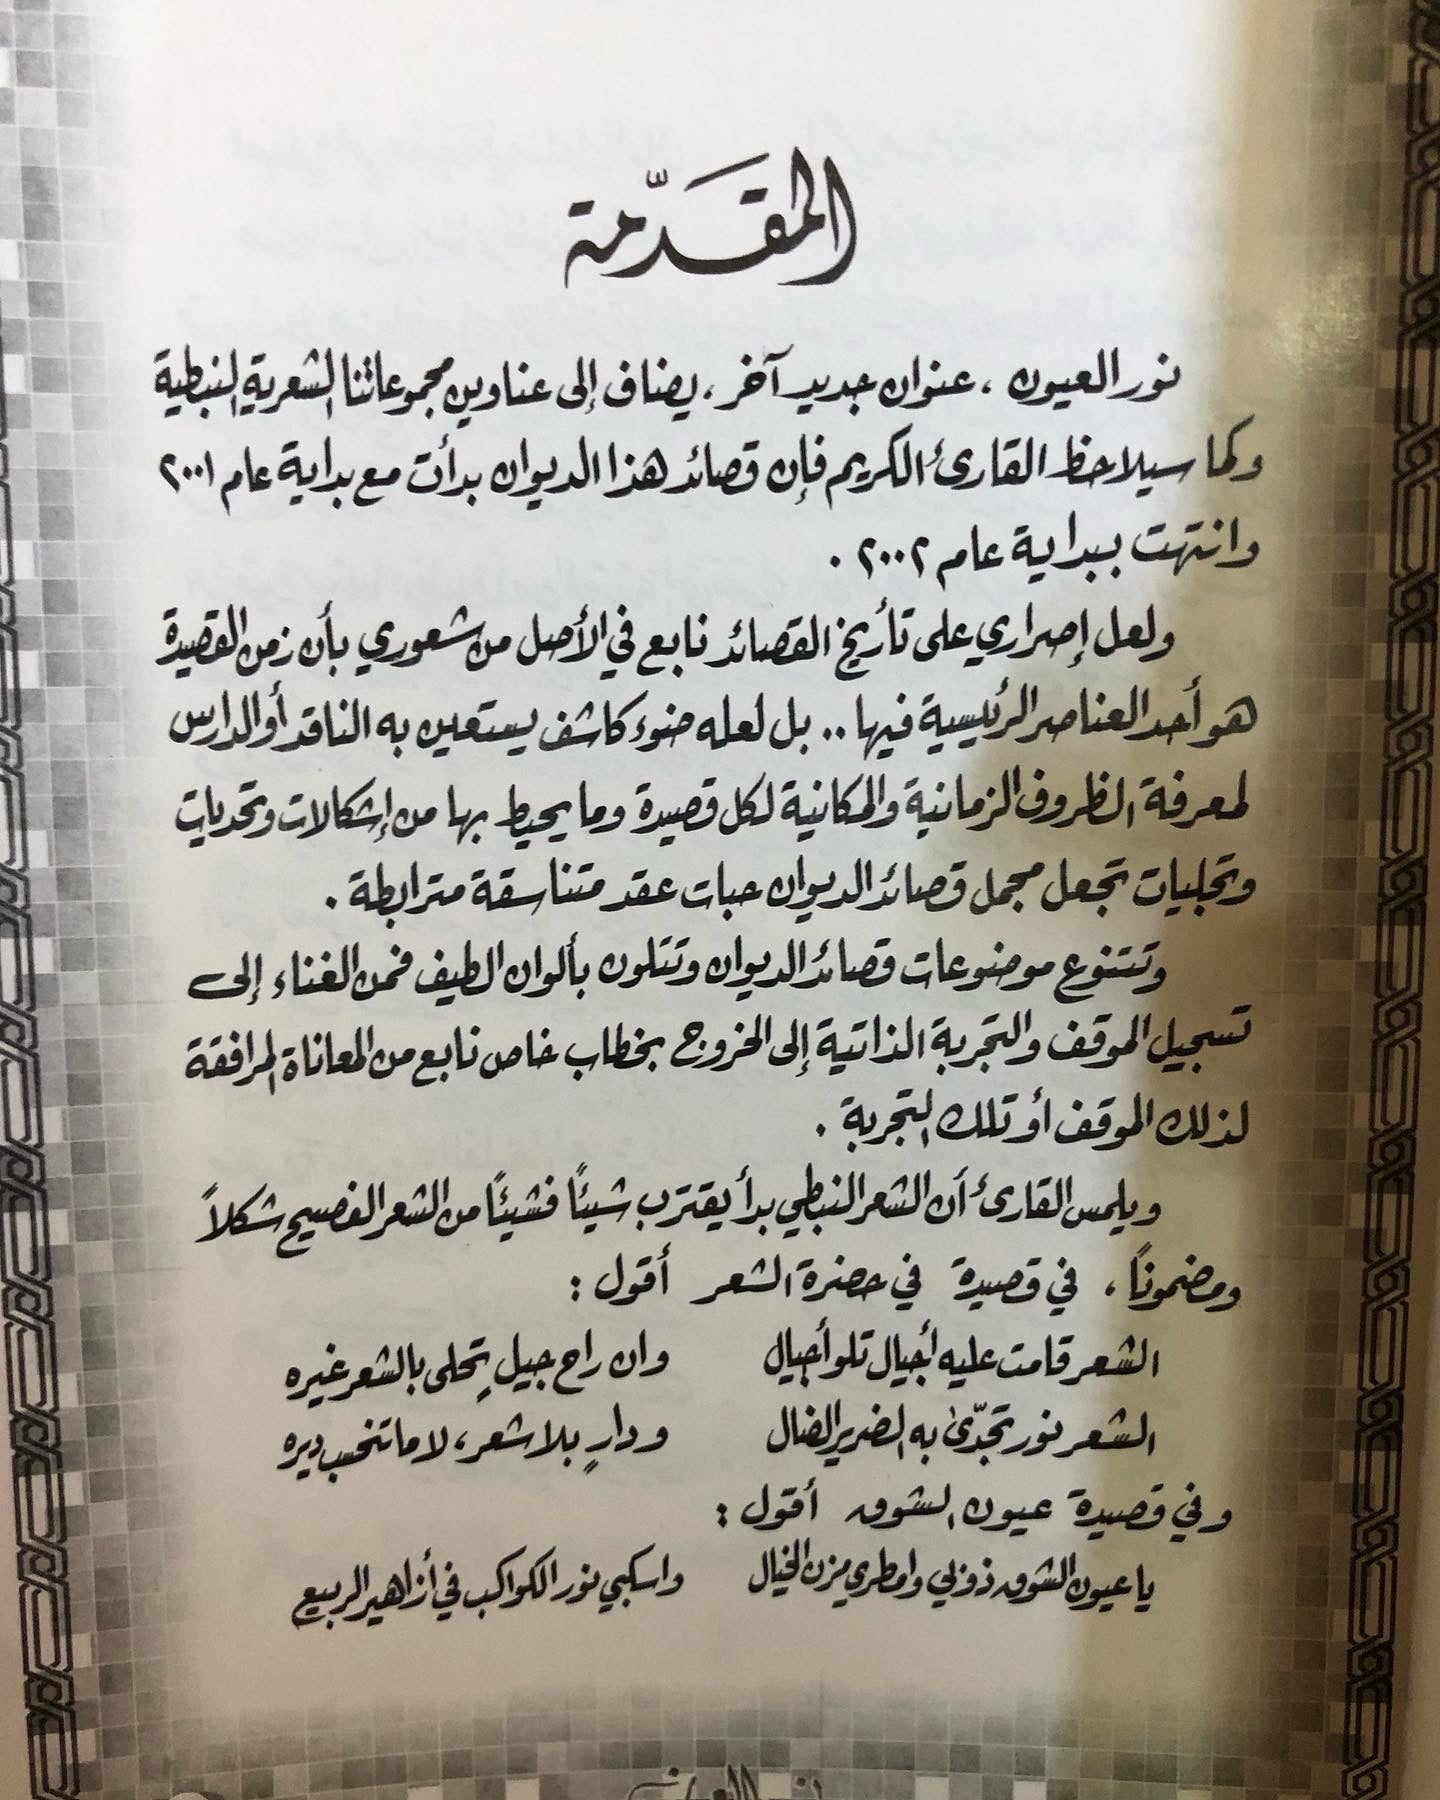 المقدّمة
نور العيون ، عنوان جديد آخر ، يضاف إلى عناوين مجموعاتنا الشعرية النبطية
وكما سيلاحظ القارئ الكريم فإن قصائد هذا الديوان بدأت مع بداية عام ٢٠٠١
وانتهت ببداية عام ٢٠٠٢ .
ولعل إصراري على تأريخ القصائد نابع في الأصل من شعوري بأن زمن القصيدة
هو أحد العناصر الرئيسية فيها .. بل لعله ضوء كاشف يستعين به الناقد أو الدارس
لمعرفة الظروف الزمانية والمكانية لكل قصيدة وما يحيط بها من إشكالات وتحديات
وتجليات تجعل مجمل قصائد الديوان حبات عقد متناسقة مترابطة .
وتتنوع موضوعات قصائد الديوان وتتلون بألوان الطيف فمن الغناء إلى
تسجيل الموقف والتجربة الذاتية إلى الخروج بخطاب خاص نابع من المعاناة المرافقة
لذلك الموقف أو تلك التجربة .
ويلمس القارئ أن الشعر النبطي بدأ يقترب شيئاً فشيئاً من الشعر الفصيح شكلاً
ومضموناً ، في قصيدة في حضرة الشعر أقول :
الشعر قامت عليه أجيال تلو أجيال وان راح جيلٍ تحلى بالشعر غيره
الشعر نور تجدّىٰ به الضرير الضال ودارٍ بلا شعر ، لا ما تنحسب ديره
وفي قصيدة عيون الشوق أقول :
يا عيون الشوق ذوبي وامطري مزن الخيال واسكبي نور الكواكب في أزاهير الربيع